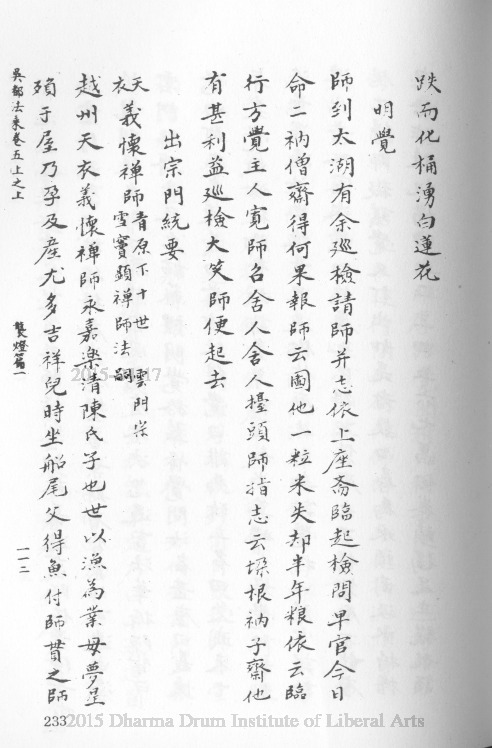 趺而化桶湧白蓮花
明覺
師到太湖有余廵檢請師并志依上座斋臨起檢問早官今日
命二衲僧齋得何果報師云圖他一粒米失却半年粮依云臨
行方覺主人寬師名舍人舍人擡頭師指志云壞根衲子齋他
有甚利益廵檢大笑師便起去
出宗門統要
天衣義懷禪師青原下十世雲門宗雪竇顯禪師法嗣
越州天衣義懷禪師永嘉樂清陳氏子也世以漁為業母夢星
殞于屋乃孕及產尤多吉祥兒時坐船尾父得魚付師貫之師
吳都法乘卷五上之上
襲燈篇一
一一二
233
2015 Dharma Drum Institute of Liberal Arts